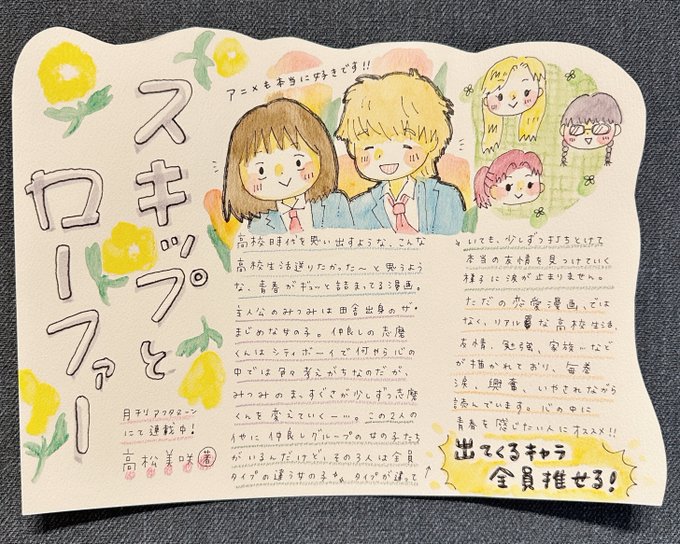 スキップと
ローファー
月刊アフタヌーン
にて連載中!
高松美咲 著
アニメも本当に好きです!!
高校時代を思い出すような、こんな
高校生活送りたかった〜と思うよう
な、青春がギュッと詰まってる漫画。
主人公のみつみは田舎出身のザ・
まじめな女の子。仲良しの志摩
くんはシティボーイで何やら心の
中では色々考えがちなのだが、
みつみのまっすぐさが少しずつ志摩
くんを変えていく…。この2人の
他に仲良しグループの女の子たち
がいるんだけど、その3人は全員
タイプの違う女の子。タイプが違って
いても、少しずつ打ちとけて
本当の友情を見つけていく
様子に涙が止まりません。
ただの恋愛漫画、では
なく、リアルな高校生活、
友情、勉強、家族…など
が描かれており、毎巻
涙、興奮、いやされながら
読んでいます。心の中に
青春を感じたい人にオススメ!!
出てくるキャラ
全員推せる!